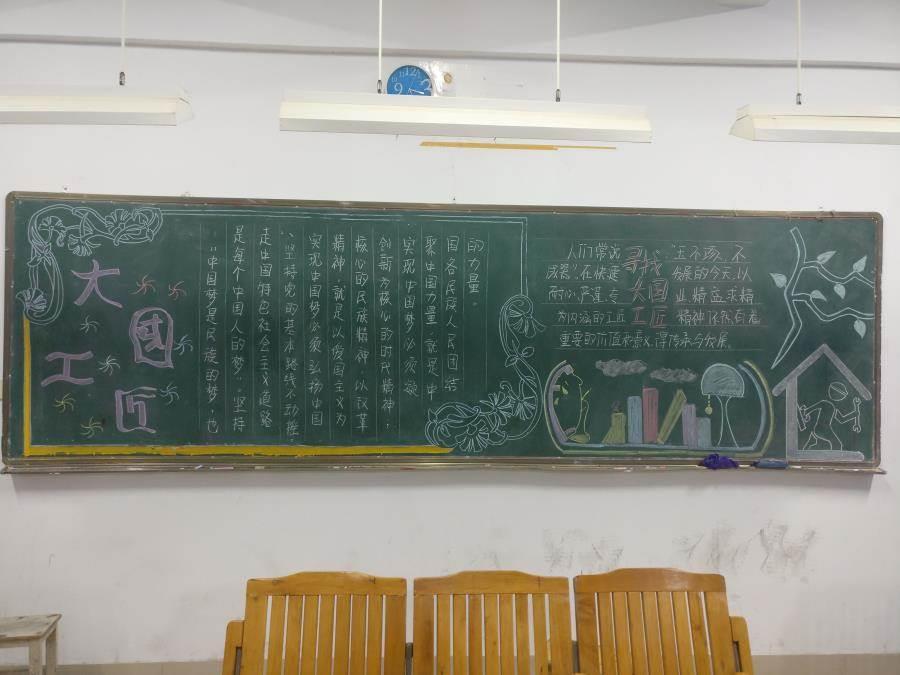 大國
工匠
"中国梦是民族的梦，也
是每个中国人的梦"坚持
走中国特色社会主义道路
、坚持党的基本路线不动摇。
实现中国梦必须弘扬中国
精神，就是以爱国主义为
核心的民族精神，以改革
创新为核心的时代精神。
实现中国梦必须凝
聚中国力量，就是中
国各民族人民团结
的力量。
寻找
大国
工匠
人们常说"玉不琢，不
成器"，在快速发展的今天，以
耐心、严谨、专业、精益求精
为内涵的工匠精神依然有着
重要的价值和意义，得传承与发展。
12
9